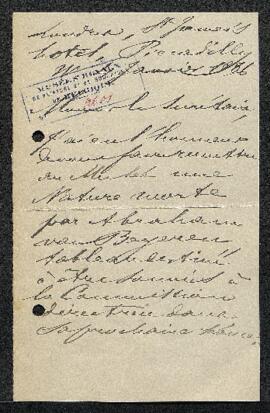 Londres, St James's
hotel, Piccadilly
Janvier
MUSÉES ROYAUX
DE PEINTURE ET DE SCULPTURE
DE BELGIQUE
Monsieur le Secrétaire
J'ai eu l'honneur
de vous faire remettre
au Musée une
Nature morte
par Abraham
van Beyeren
tableau destiné
à être soumis à
la Commission
directrice dans
sa prochaine séance